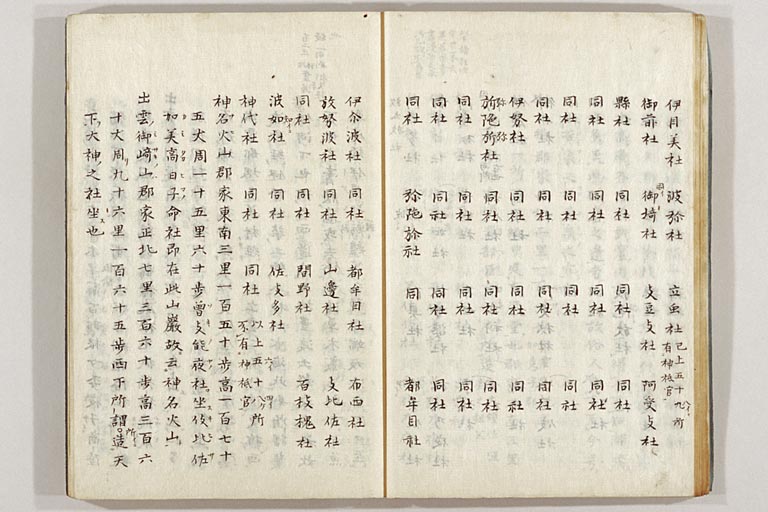 伊月美社 波弥社 立虫社 已上五十九所有神祇官
御前社 御埼社 支豆支社 阿受支社
縣社 同社 同社 同社
同社 同社 同社 同社
同社 同社 同社 同社
同社 同社 同社 同社
伊努社 同社 同社 同社
同社 同社 同社
同社 同社 同社 同社
同社 同社 同社 同社
同社 弥陁弥社 同社 都牟自社
伊尒波社 同社 都牟日社 布西社
放努波社 同社 山邊社 支比佐社
同社 同社 間野社 百枝槐社
波如社 同社 佐支多社
神代社 同社 同社 以上五十八所不有神祇官
神名火山郡家東南三里一百五十步高一百七十
五丈周一十五里六十步曾支能夜社坐伎比佐
加美高日子命社即在此山嚴故云神名火山
出雲御﨑山郡家正北七里三百六十步高三百六
十丈周九十六里一百六十五步西下所謂造天
下大神之社坐也